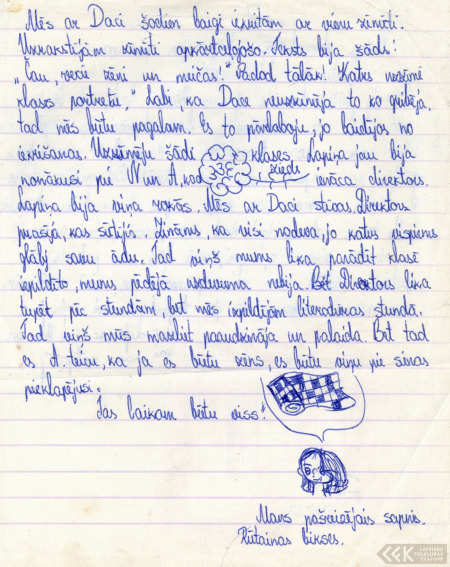 Mēs ar Daci šodien baigi iekritām ar vienu zīmīti.
Uzrakstījām zīmīti apkārtceļojošo. Teksts bija šāds:
"Čau, vecie zēni un meičas! Padod tālāk! Katrs uzzīmē
klases portretu." Labi, ka Dace neuzzīmēja to ko gribēja,
tad mēs būtu pagalam. Es to pārlaboju, jo baidījos no
iekrišanas. Uzzīmēju šādi klases Lapiņa jau bija
33g zieds
nonākusi pie N un A, kad ienāca direktors.
Lapiņa bija viņa rokās. Mēs ar Daci stīvas. Direktors
prasīja, kas sūtījis. Zināms, ka visi nodeva, jo katrs vispirms
glābj savu ādu. Tad viņš mums lika parādīt klasē
izpildīto, mums pēdējā uzdevuma nebija. Bet Direktors lika
turēt pēc stundām, bet mēs izpildījām literatūras stundā.
Tad viņš mūs mazliet paaudzināja un palaida. Bet tad
es A. teicu, ka ja es būtu zēns, es būtu viņu pie sienas
pieklapējusi.
Tas laikam būtu viss!
Mans pašreizējais sapnis.
Rūtainas bikses.
LATVIEŠU
FOLKLORAS
KRĀTUVE